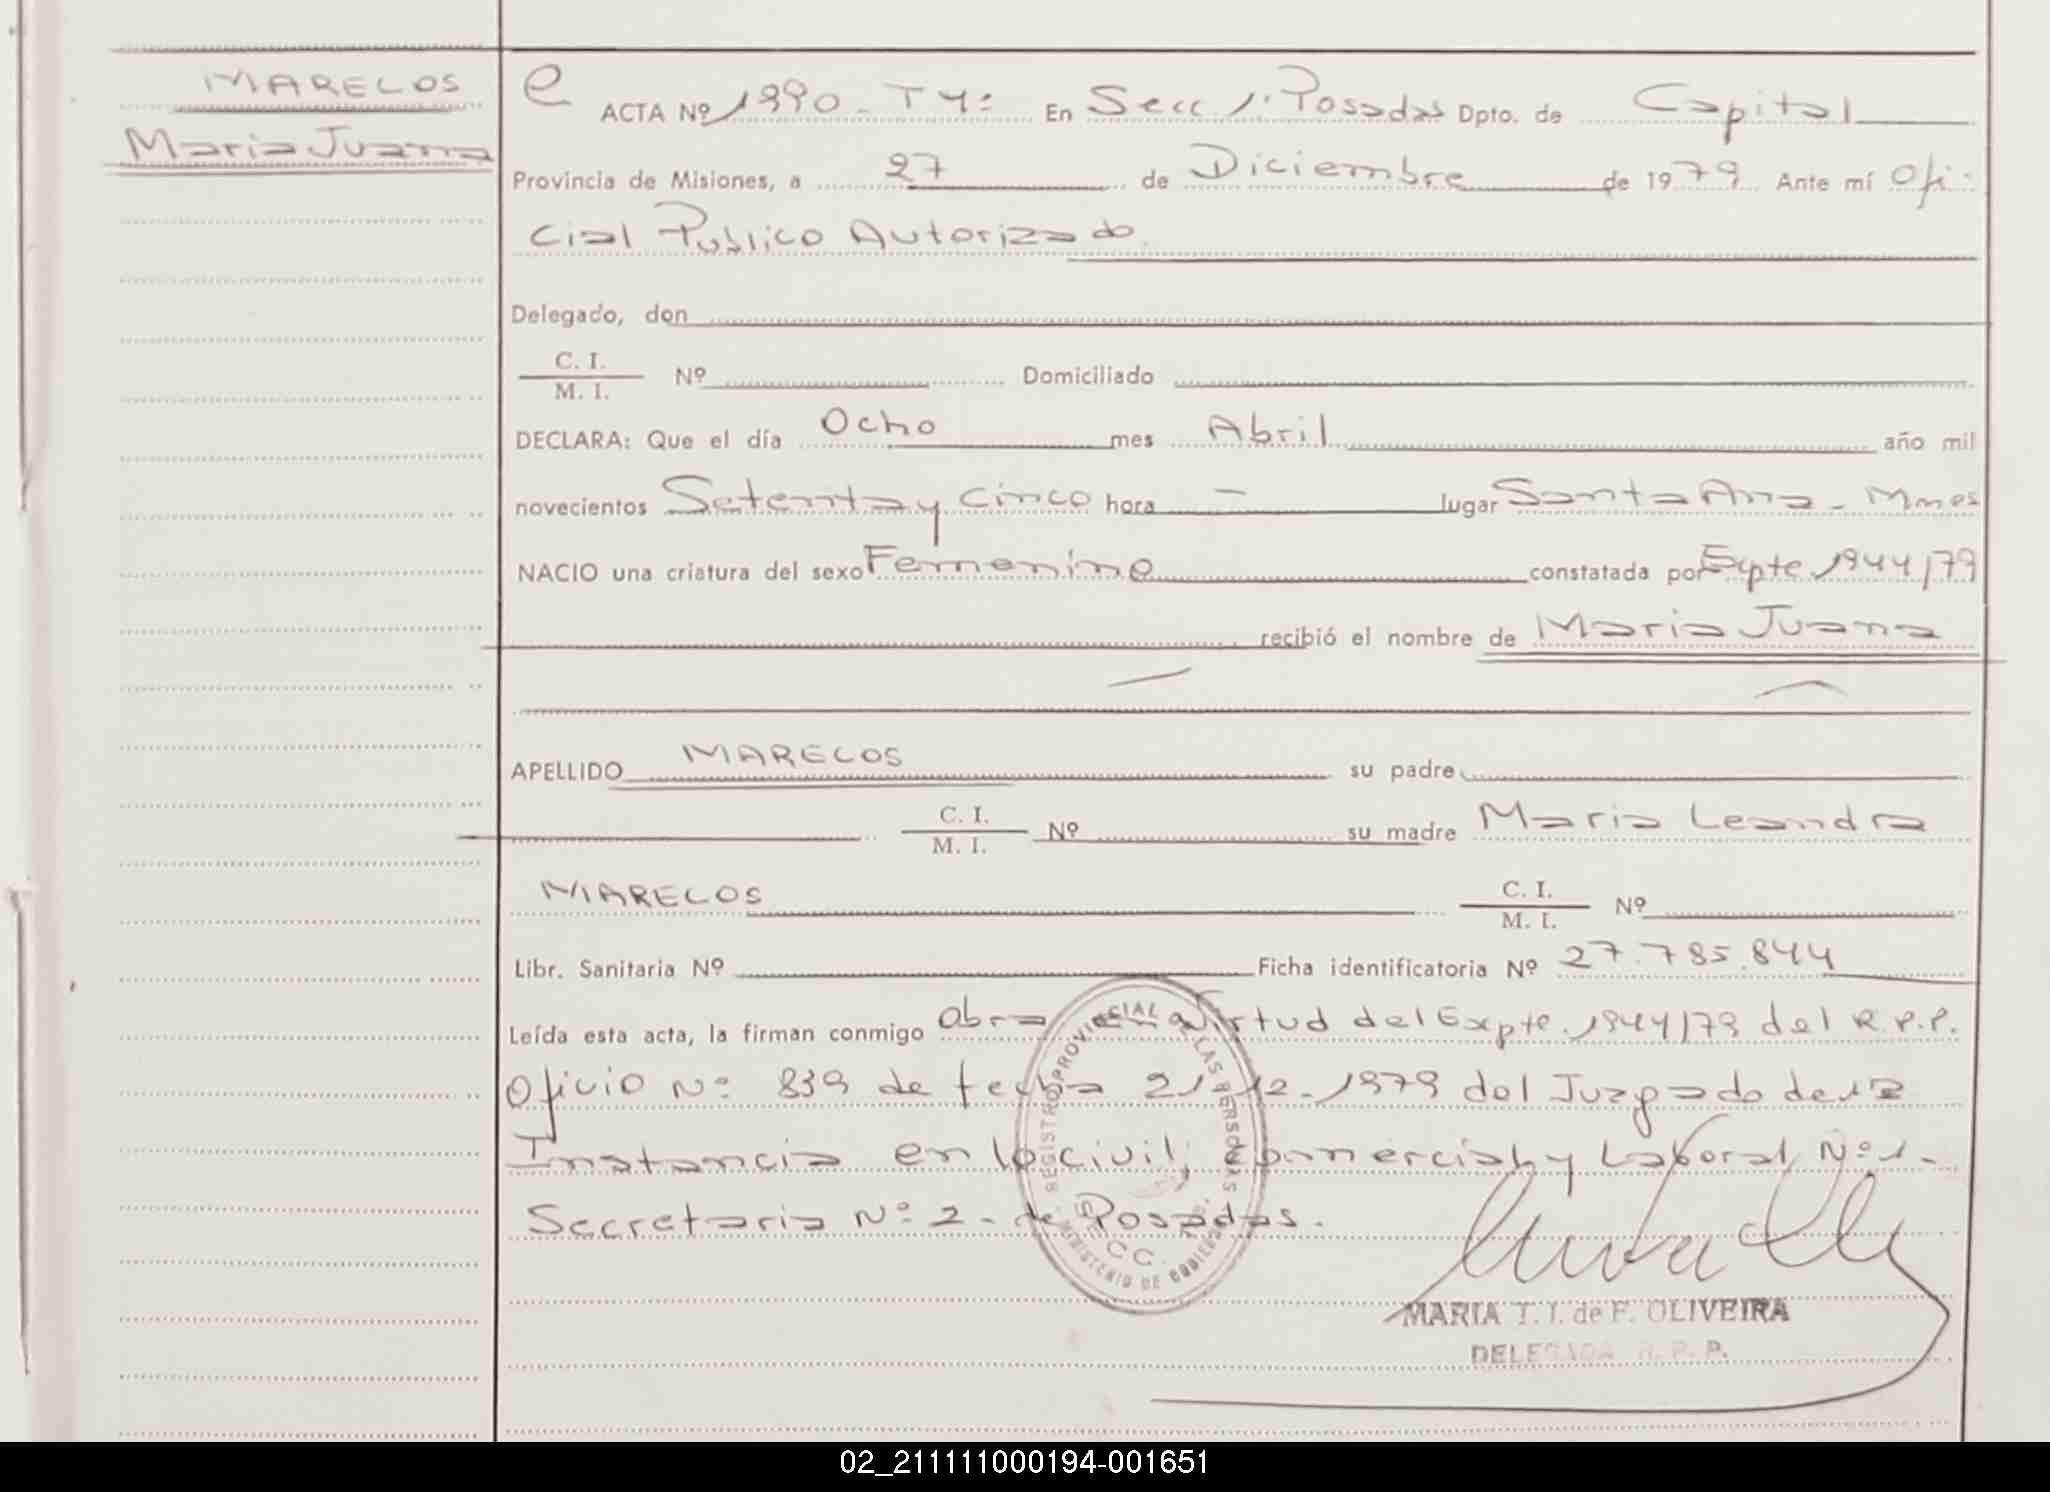 MARELOS
Maria Juana
e ACTA Nº 1990 - T4º En Secc 1ª Posadas Dpto. de Capital
Provincia de Misiones, a 27 de Diciembre de 1979 Ante mí Ofi-
cial Publico Autorizado
Delegado, don
C. I.
M. I. Nº Domiciliado
DECLARA: Que el día Ocho mes Abril año mil
novecientos Setenta y Cinco hora — lugar Santa Ana - Mnes
NACIO una criatura del sexo Femenino constatada por Expte 1944/79
recibió el nombre de Maria Juana
APELLIDO MARELOS su padre
C. I.
M. I. Nº su madre Maria Leandra
MARELOS C. I.
M. I. Nº
Libr. Sanitaria Nº Ficha identificatoria Nº 27.785.844
Leída esta acta, la firman conmigo Obra en virtud del Expte. 1944/79 del R.P.P.
Oficio Nº 839 de fecha 21-12-1979 del Juzgado de 1ª
Instancia en lo civil, Comercial y Laboral Nº 1-
Secretaria Nº 2 - de Posadas.
REGISTRO PROVINCIAL DE LAS PERSONAS
SECC.
MINISTERIO DE GOBIERNO
MARIA T. I. de F. OLIVEIRA
DELEGADA R. P. P.
02_211111000194-001651